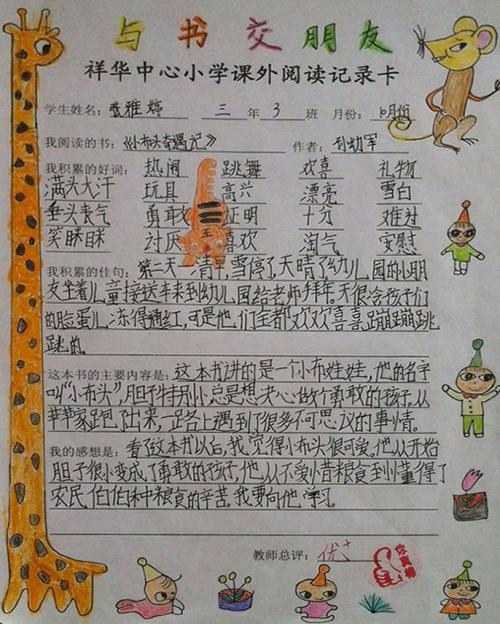 与书交朋友
祥华中心小学课外阅读记录卡
学生姓名：张雅婷 三 年 3 班 月份：10月份
我阅读的书：《小布头奇遇记》 作者：孙幼军
我积累的好词：热闹 跳舞 欢喜 礼物
满头大汗 玩具 高兴 漂亮 雪白
垂头丧气 勇敢 证明 十分 难过
笑眯眯 讨厌 喜欢 淘气 安慰
我积累的佳句：第二天一清早，雪停了，天晴了，幼儿园的小朋
友坐着儿童接送车来到幼儿园给老师拜年。天很冷，孩子们
的脸蛋儿冻得通红，可是他们全都欢欢喜喜，蹦蹦跳
跳的。
这本书的主要内容是：这本书讲的是一个小布娃娃，他的名字
叫“小布头”，胆子特别小，总是想决心做个勇敢的孩子。从
苹苹家跑出来，一路上遇到了很多不可思议的事情。
我的感想是：看了这本书以后，我觉得小布头很可爱。他从开始
胆子很小变成了勇敢的孩子，他从不爱惜粮食到懂得了
农民伯伯种粮食的辛苦。我要向他学习。
教师总评：优+
你真棒